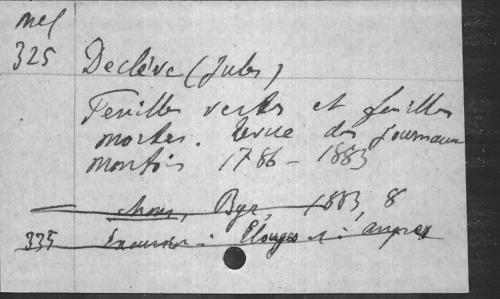 mel
325 Declève (Jules)
Feuilles vertes et feuilles
mortes. Revue des journaux
montois 1786 - 1883
Mons, Byr, 1883, 8
335 Excursion à Elouges et à Angre